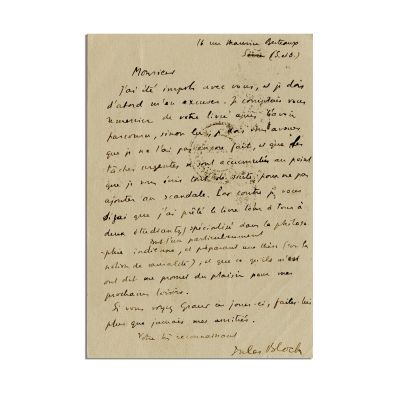 16 rue Maurice Berteaux
Sèvres (S. et O.)
Monsieur
J'ai été impoli avec vous, et je dois
d'abord m'en excuser. Je comptais vous
remercier de votre livre après l'avoir
parcouru, sinon lu ; je dois vous avouer
que je ne l'ai pas encore fait, et que des
tâches urgentes se sont accumulées au point
que je vous écris tout de suite, pour ne pas
ajouter au scandale. Par contre je
sais que j'ai prêté le livre tour à tour à
deux étudiants spécialisés dans la philoso-
-phie indienne,
dont l'un particulièrement
et préparant une thèse (sur la
notion de causalité), et que ce qu'ils m'en
ont dit me promet du plaisir pour mes
prochains loisirs.
Si vous voyez ces jours-ci, faites-lui
plus que jamais mes amitiés.
Votre très reconnaissant
Jules Bloch